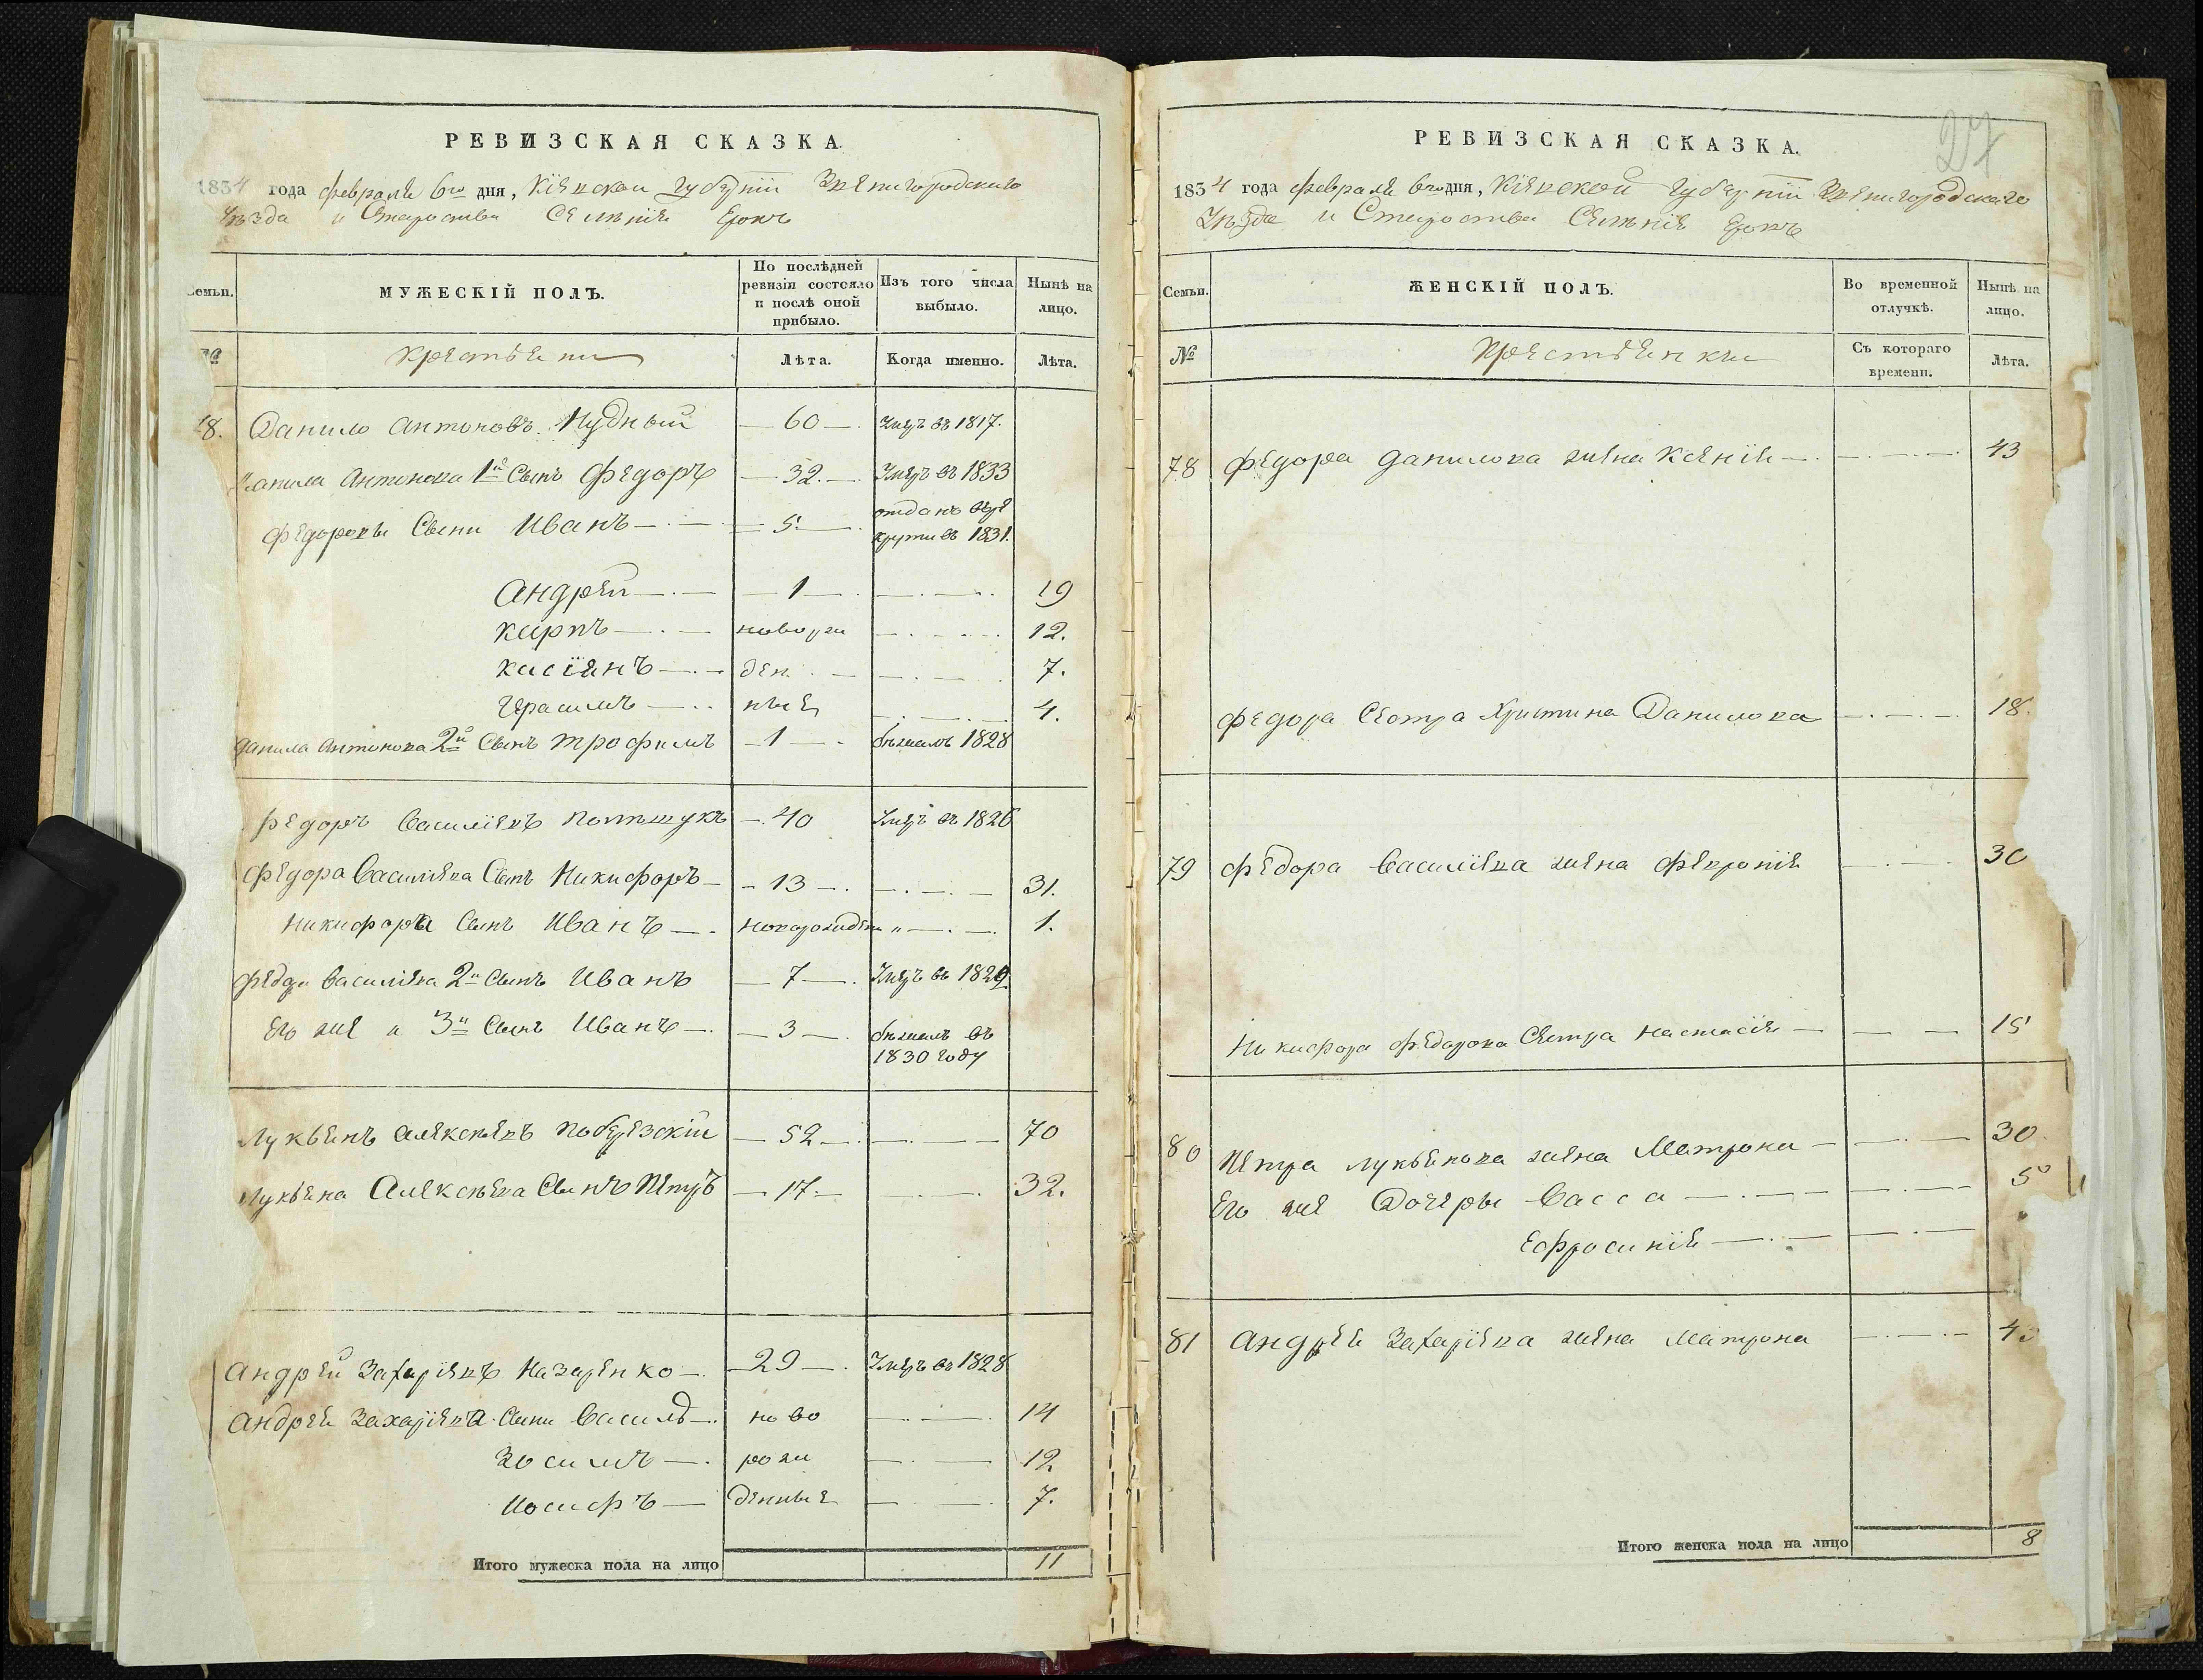 РЕВИЗСКАЯ СКАЗКА.
1834 года февраля 6го дня, Кіевской губерніи Звенигородского
Уѣзда и Староства Селѣнія Ерокъ
Семьи.
МУЖЕСКІЙ ПОЛЪ.
По послѣдней ревизіи состояло и послѣ оной прибыло.
Изъ того числа выбыло.
Нынѣ на лицо.
№
Крестьяни
Лѣта.
Когда именно.
Лѣта.
78. Данило Антоновъ Нудный — 60 — Умеръ въ 1817.
Данила Антонова 1й Сынъ Федоръ — 32. — Умеръ въ 1833
Федоровы Сыни Иванъ — 5 — отданъ въ ре
крути въ 1831.
Андрей — 1 — 19
Карпъ — новорож — 12.
Касіянъ — ден — 7.
Герасимъ — ные — 4.
Данила Антонова 2й Сынъ Трофимъ — 1 — бѣжалъ 1828
Федоръ Василіевъ Полѣщукъ — 40 Умеръ въ 1826
Федора Василіева Сынъ Никифоръ — 13 — 31.
Никифора Сынъ Иванъ — новорожденъ " — 1.
Федора Василіева 2й Сынъ Иванъ — 7 — Умеръ въ 1829
Его же и 3й Сынъ Иванъ — 3 — бѣжалъ въ
1830 году
Лукьянъ Алексѣевъ Побережскій — 52 — 70
Лукьяна Алексѣева Сынъ Петръ — 17 — 32.
Андрей Захаріевъ Назаренко — 29 — Умеръ въ 1828
Андрея Захаріева Сыни Василь — ново — 14
Зосимъ — рож — 12
Иосифъ — денные — 7.
Итого мужеска пола на лицо 11
27
РЕВИЗСКАЯ СКАЗКА.
1834 года февраля 6го дня, Кіевской губерніи Звенигородскаго
Уѣзда и Староства Селѣнія Ерокъ
Семьи.
ЖЕНСКІЙ ПОЛЪ.
Во временной отлучкѣ.
Нынѣ на лицо.
№
Крестьянки
Съ котораго времени.
Лѣта.
78 Федора Данилова жена Ксенія — 43
Федора Сестра Христина Данилова — 18.
79 Федора Василіева жена Февронія — 30
Никифора Федорова Сестра Настасія — 15
80 Петра Лукьянова жена Матрона — 30
Его же Дочеры Васса — 5
Ефросинія —
81 Андрея Захаріева жена Матрона
Итого женска пола на лицо 8